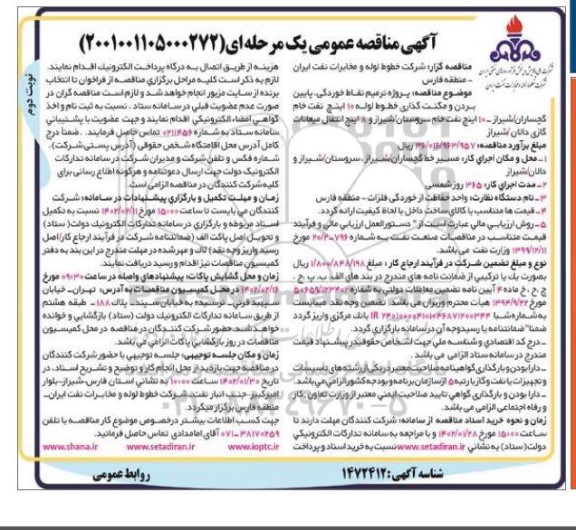 آگهی مناقصه عمومی یک مرحله ای (۲۰۰۱۰۰۱۱۰۵۰۰۰۲۷۲)
نوبت دوم
مناقصه گزار: شرکت خطوط لوله و مخابرات نفت ایران
– منطقه فارس
موضوع مناقصه: پروژه ترمیم نقاط خوردگی، پایین
بردن و مکنت گذاری خطوط لوله ۱۰ اینچ نفت خام
گچساران/شیراز – ۱۰ اینچ نفت خام سروستان/شیراز و ۸ اینچ انتقال میعانات
گازی دالان/شیراز
مبلغ برآورد مناقصه: ۳۶/۰۱۶/۹۶۳/۹۵۷ ریال
۱- محل و مکان اجرای کار: مسیر خط گچساران/شیراز، سروستان/شیراز و
دالان/شیراز
۲- مدت اجرای کار: ۳۶۵ روز شمسی
۳- نام دستگاه نظارت: واحد حفاظت از خوردگی فلزات – منطقه فارس
۴- قیمت ها متناسب با کالای ساخت داخل با لحاظ کیفیت ارائه گردد.
۵- روش ارزیابی مالی عبارت است از "دستورالعمل ارزیابی مالی و فرآیند
قیمت متناسب در مناقصات صنعت نفت به شماره ۷۹۶-۲۰/۲ مورخ
۱۳۹۹/۱۲/۱۱ وزارت نفت می باشد.
نوع و مبلغ تضمین شرکت در فرآیند ارجاع کار: مبلغ ۱/۸۰۰/۸۴۸/۱۹۸ ریال
بصورت یک یا ترکیبی از ضمانت نامه های مندرج در بند های الف، ب، پ،
ج، چ، خ ماده ۴ آیین نامه تضمین معاملات دولتی به شماره ۱۲۳۴۰۲/ت۵۰۶۵۹
مورخ ۱۳۹۴/۹/۲۲ هیأت محترم وزیران می باشد. تضمین وجه نقد میبایست
به شماره شبا بانک مرکزی واریز گردد
ضمنا" ضمانتنامه یا رسید وجه آن در سامانه بارگزاری گردد.
– درج کد اقتصادی و شناسه ملی جهت اشخاص حقوقی در پیشنهاد قیمت
مندرج در سامانه ستاد الزامی می باشد.
– دارا بودن و بارگذاری گواهینامه صلاحیت معتبر در یکی از رشته های تأسیسات
و تجهیزات یا نفت و گاز با رتبه ۵ از سازمان برنامه و بودجه کشور الزامی می باشد.
– دارا بودن و بارگذاری گواهی تایید صلاحیت ایمنی معتبر از وزارت تعاون، کار
و رفاه اجتماعی الزامی می باشد.
زمان و نحوه خرید اسناد مناقصه از سامانه: شرکت کنندگان مهلت دارند تا
ساعت ۱۵:۰۰ مورخ ۱۴۰۲/۰۱/۲۸ و با مراجعه به سامانه تدارکات الکترونیکی
دولت (ستاد) به نشانی www.setadiran.ir نسبت به خرید اسناد و پرداخت
هزینه از طریق اتصال به درگاه پرداخت الکترونیک اقدام نمایند.
لازم به ذکر است کلیه مراحل برگزاری مناقصه از فراخوان تا انتخاب
برنده از سایت مزبور انجام خواهد شد و لازم است مناقصه گران در
صورت عدم عضویت قبلی در سامانه ستاد، نسبت به ثبت نام و اخذ
گواهی امضاء الکترونیکی اقدام نمایند و جهت عضویت با پشتیبانی
سامانه ستاد به شماره ۰۲۱۱۴۵۶ تماس حاصل فرمایند. ضمنا درج
کامل آدرس محل اقامتگاه شخص حقوقی (آدرس پستی شرکت)،
شماره فکس و تلفن شرکت و مدیران شرکت در سامانه تدارکات
الکترونیک دولت جهت ارسال دعوتنامه و هرگونه اطلاع رسانی برای
کلیه شرکت کنندگان در مناقصه الزامی است.
زمان و مهلت تکمیل و بارگزاری پیشنهادات در سامانه: شرکت
کنندگان می بایست تا ساعت ۱۵:۰۰ مورخ ۱۴۰۲/۰۲/۱۱ نسبت به تکمیل
اسناد مربوطه و بارگزاری در سامانه تدارکات الکترونیک دولت (ستاد)
و تحویل اصل پاکت الف (ضمانتنامه شرکت در فرآیند ارجاع کار/اصل
رسید واریز وجه نقد) لاک و مهر شده در مهلت مندرج در این بند به دفتر
کمیسیون مناقصات نیز اقدام و رسید دریافت نمایند.
زمان و محل گشایش پاکات: پیشنهادهای واصله در ساعت ۰۹:۳۰ مورخ
۱۴۰۲/۰۲/۱۶ در محل کمیسیون مناقصات به آدرس: تهران – خیابان
سپهبد قرنی – نرسیده به خیابان سمیه – پلاک ۱۸۸ – طبقه هشتم
از طریق سامانه تدارکات الکترونیک دولت (ستاد) بازگشایی و خوانده
خواهد شد. حضور شرکت کنندگان در مناقصه در محل کمیسیون
مناقصات در روز بازگشایی پاکات الزامی می باشد.
زمان و مکان جلسه توجیهی: جلسه توجیهی با حضور شرکت کنندگان
در مناقصه جهت بازدید از محل انجام کار و توضیح و تشریح اسناد، در
تاریخ ۱۴۰۲/۰۱/۳۰ ساعت ۱۰:۰۰ به نشانی استان فارس – شیراز – بلوار
امیرکبیر – جنب انبار نفت – شرکت خطوط لوله و مخابرات نفت ایران –
منطقه فارس برگزار میگردد.
جهت کسب اطلاعات بیشتر در خصوص موضوع کار مناقصه با تلفن
۳۸۱۷۰۲۵۹-۰۷۱ آقای امامدادی تماس حاصل فرمایید.
www.ioptc.ir www.setadiran.ir www.shana.ir
شناسه آگهی: ۱۴۷۲۴۱۲
روابط عمومی